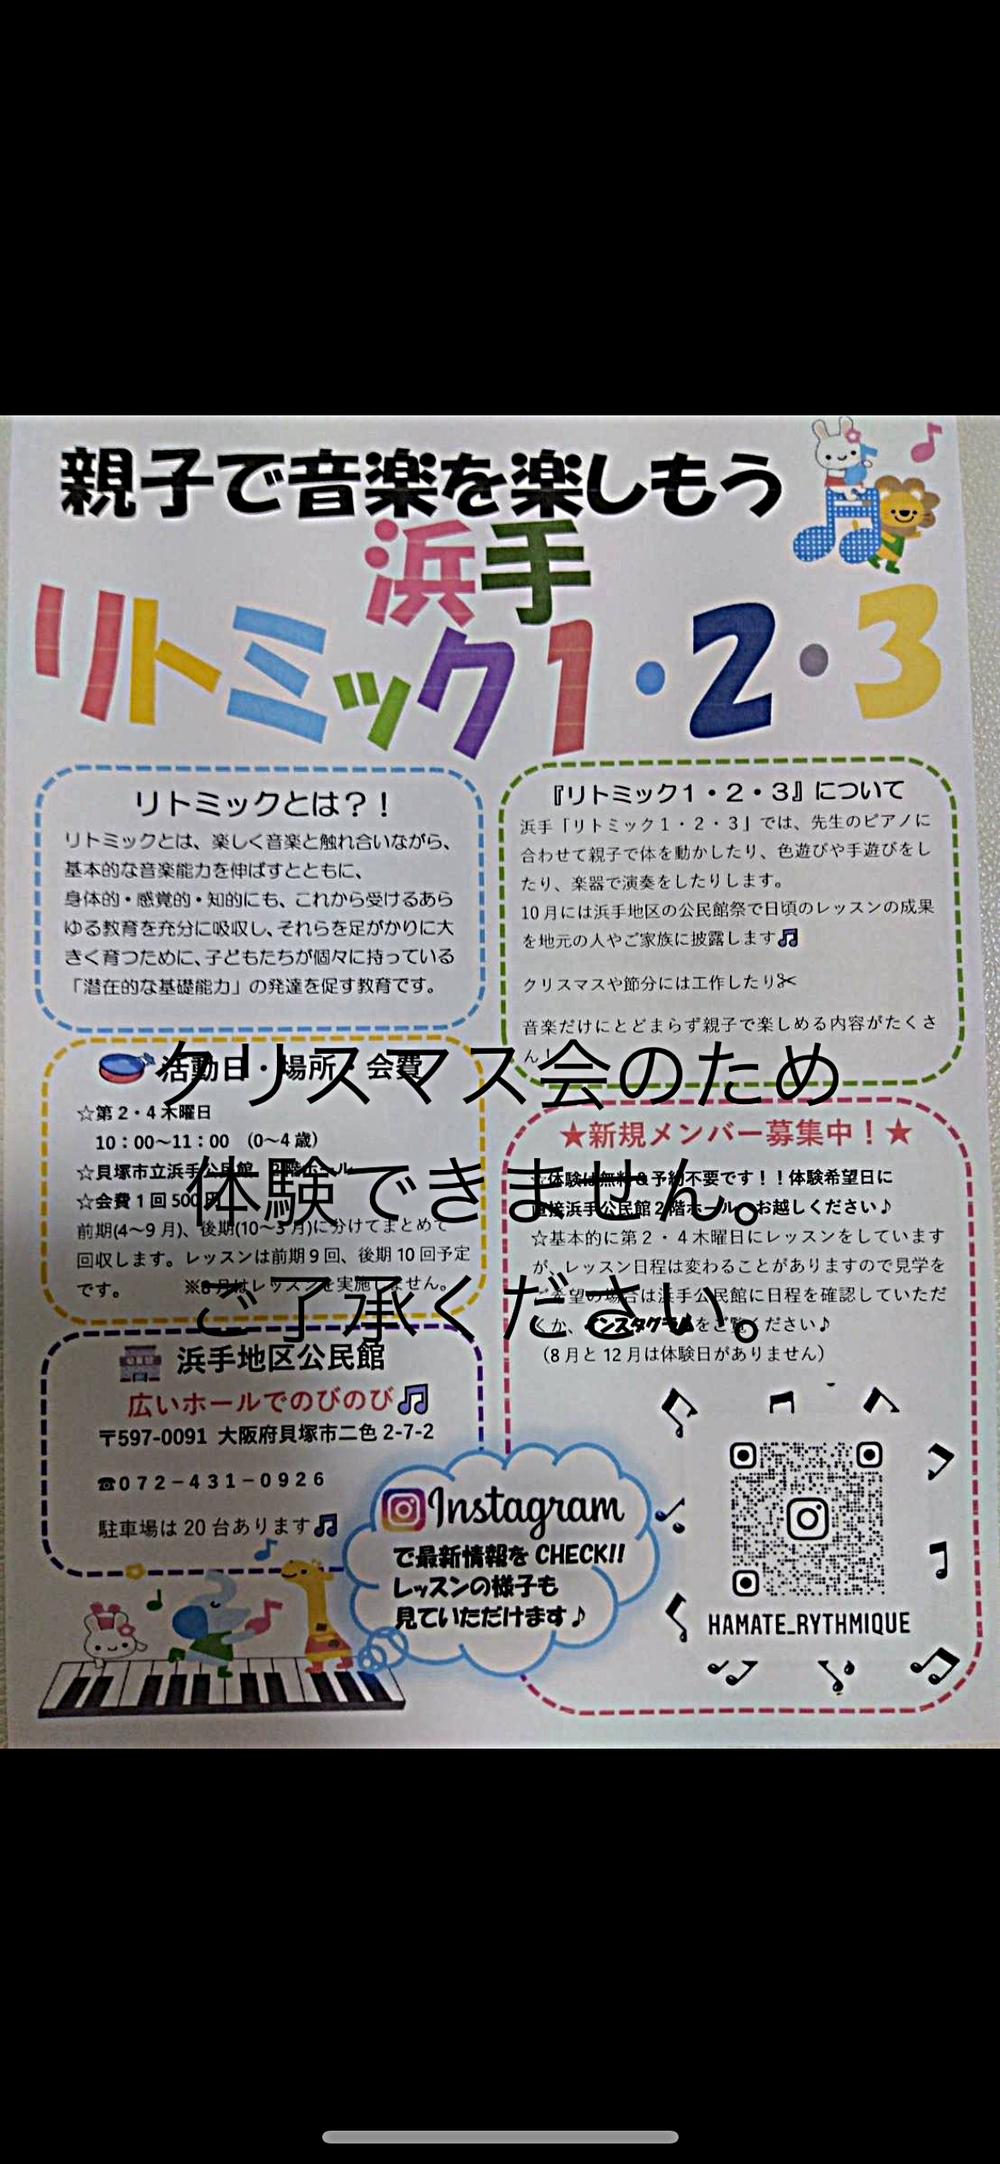 親子で音楽を楽しもう
浜手
リトミック1・2・3
リトミックとは？！
リトミックとは、楽しく音楽と触れ合いながら、
基本的な音楽能力を伸ばすとともに、
身体的・感覚的・知的にも、これから受けるあら
ゆる教育を充分に吸収し、それらを足がかりに大
きく育つために、子どもたちが個々に持っている
「潜在的な基礎能力」の発達を促す教育です。
『リトミック1・2・3』について
浜手「リトミック1・2・3」では、先生のピアノに
合わせて親子で体を動かしたり、色遊びや手遊びをし
たり、楽器で演奏をしたりします。
10月には浜手地区の公民館祭で日頃のレッスンの成果
を地元の人やご家族に披露します🎵
クリスマスや節分には工作したり✂
音楽だけにとどまらず親子で楽しめる内容がたくさ
ん！
クリスマス会のため
体験できません。
ご了承ください。
活動日・場所・会費
☆第2・4木曜日
10：00～11：00 （0～4歳）
☆貝塚市立浜手公民館 2階ホール
☆会費1回500円
前期(4～9月)、後期(10～3月)に分けてまとめて
回収します。レッスンは前期9回、後期10回予定
です。 ※8月はレッスンを実施しません。
★新規メンバー募集中！★
☆体験は無料&予約不要です！！体験希望日に
直接浜手公民館2階ホールへお越しください♪
☆基本的に第2・4木曜日にレッスンをしています
が、レッスン日程は変わることがありますので見学を
ご希望の場合は浜手公民館に日程を確認していただ
くか、インスタグラムをご覧ください♪
（8月と12月は体験日がありません）
浜手地区公民館
広いホールでのびのび🎵
〒597-0091 大阪府貝塚市二色2-7-2
☎072－431－0926
駐車場は20台あります🎵
Instagram
で最新情報を CHECK!!
レッスンの様子も
見ていただけます♪
HAMATE_RYTHMIQUE